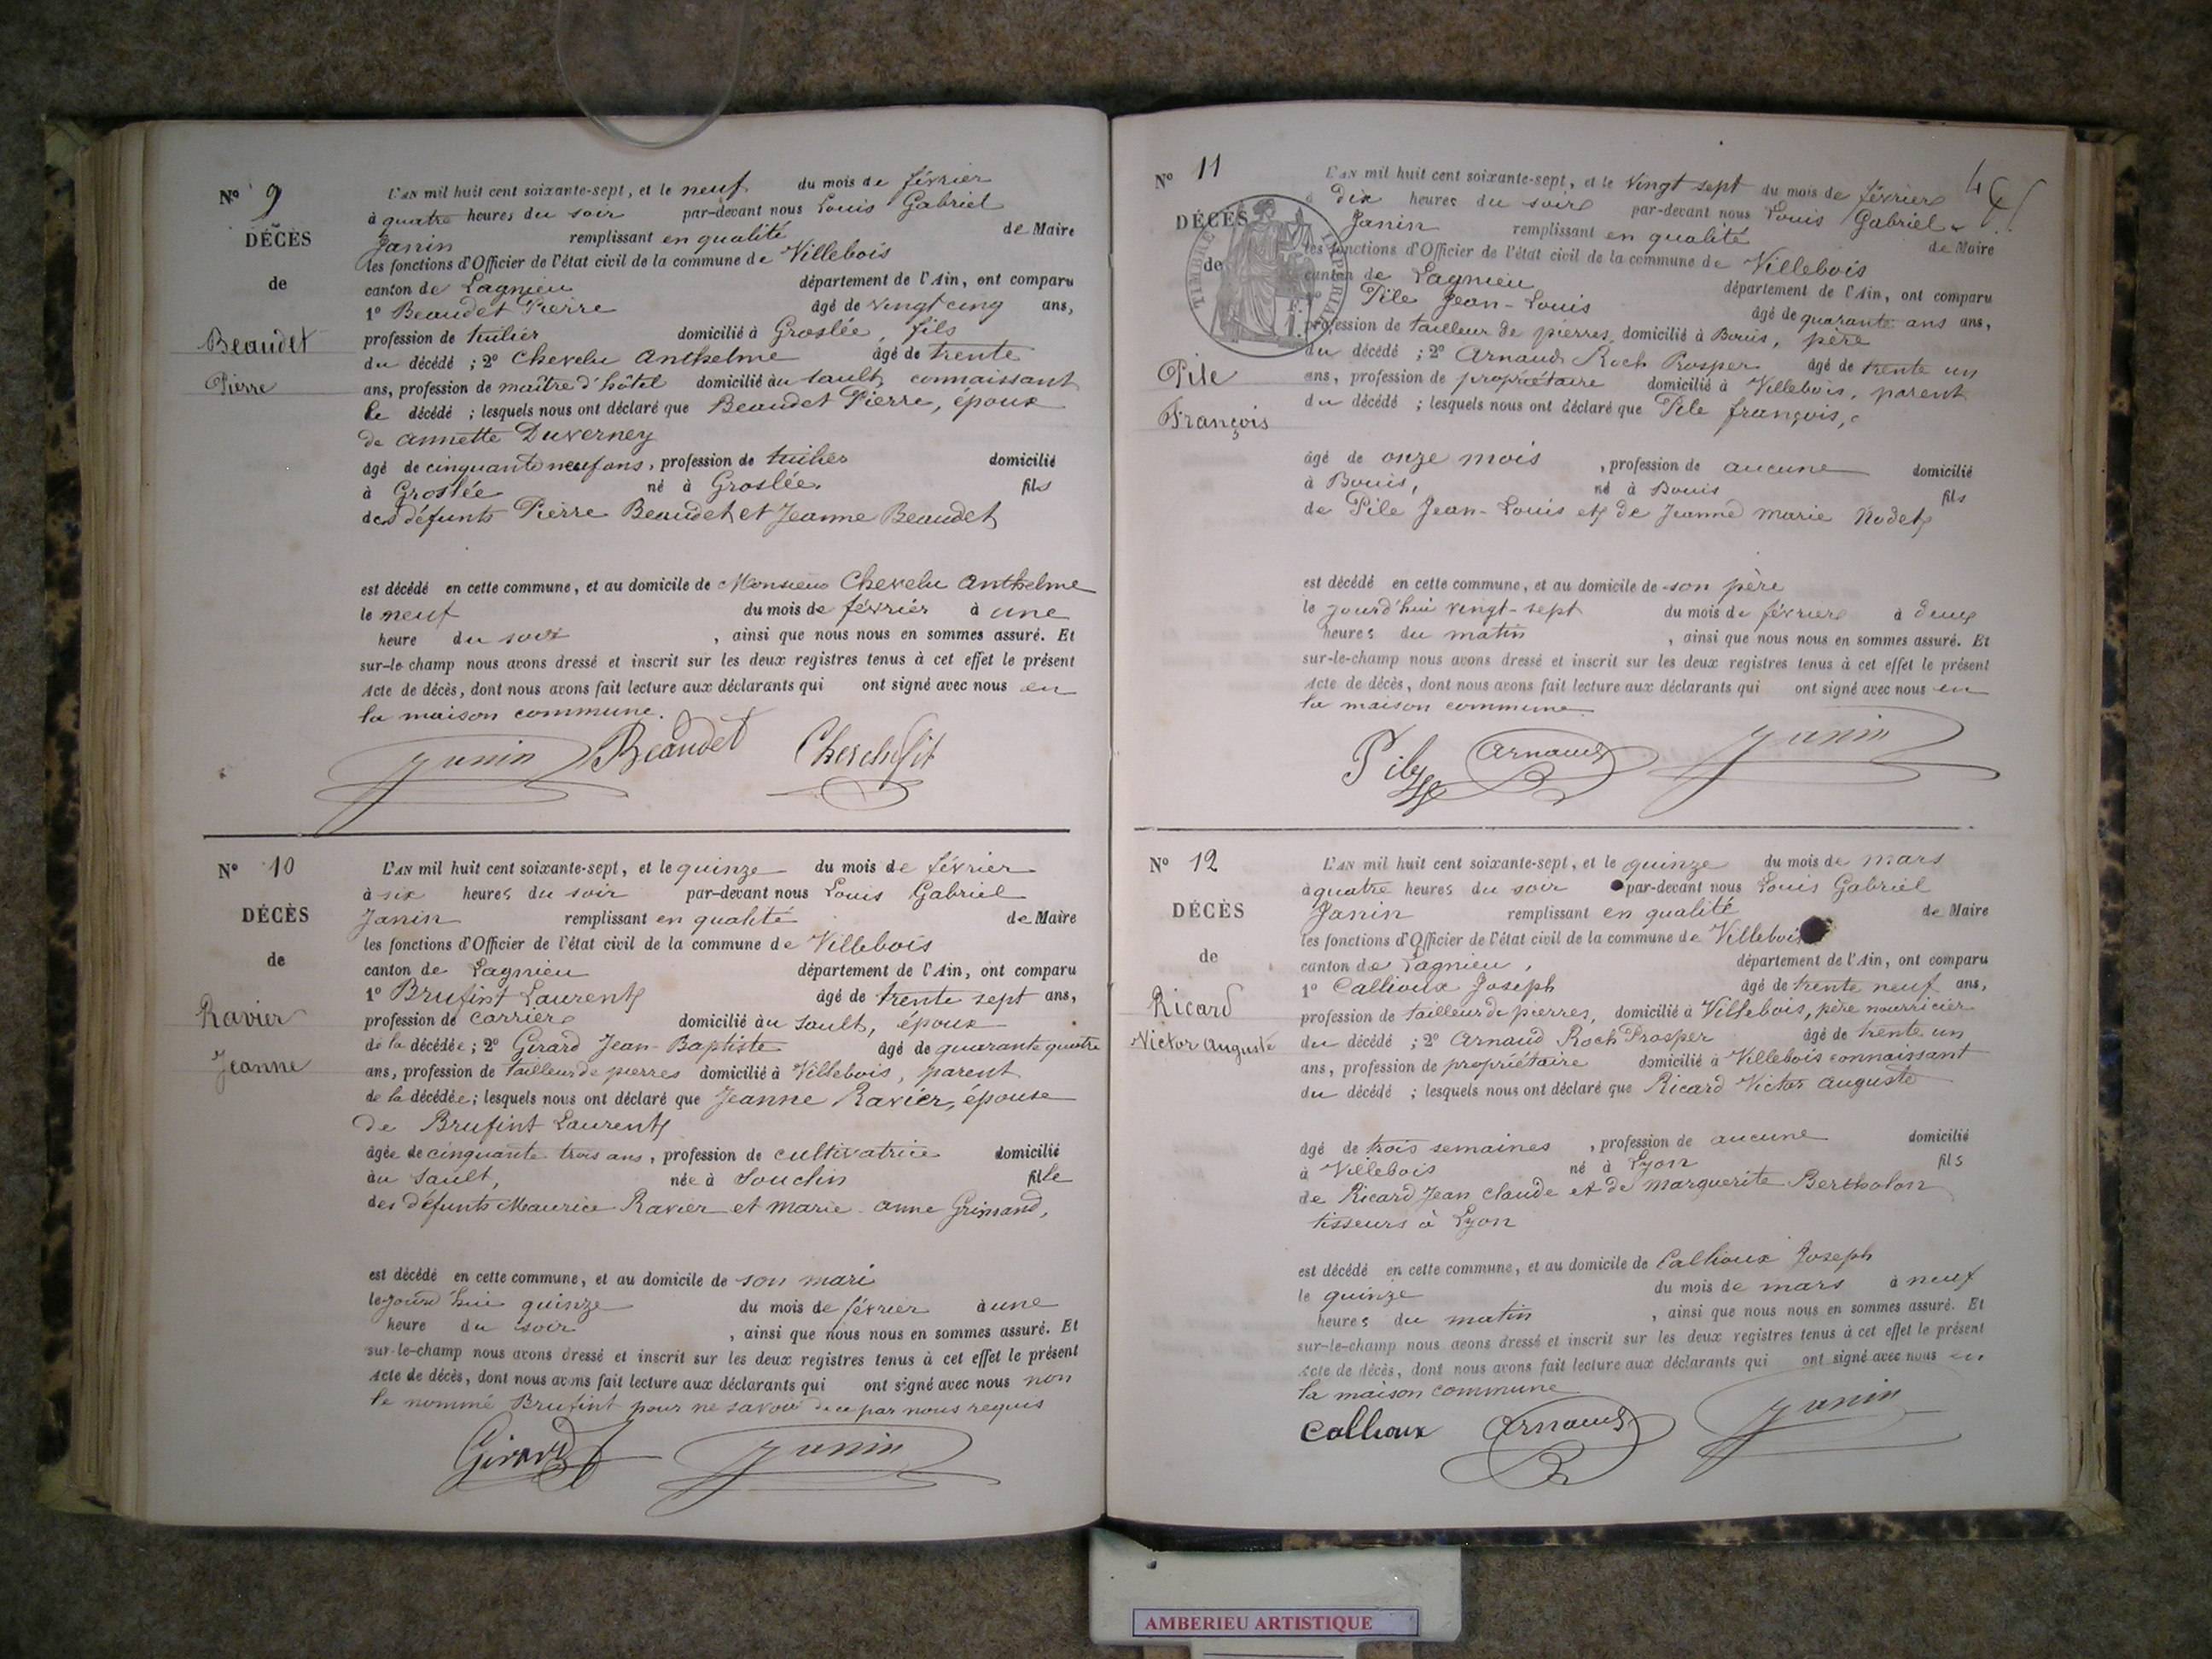 N° 9
DÉCÈS
de
Beaudet
Pierre
L'AN mil huit cent soixante-sept, et le neuf du mois de février
à quatre heures du soir par-devant nous Louis Gabriel
Janin remplissant en qualité de Maire
les fonctions d'Officier de l'état civil de la commune de Villebois
canton de Lagnieu département de l'Ain, ont comparu
1° Beaudet Pierre âgé de vingt cinq ans,
profession de tuilier domicilié à Groslée, fils
du décédé ; 2° Chevelu Anthelme âgé de trente
ans, profession de maître d'hôtel domicilié au Sault, connaissant
le décédé ; lesquels nous ont déclaré que Beaudet Pierre, époux
de annette Duverney
âgé de cinquante neuf ans, profession de tuilier domicilié
à Groslée né à Groslée. fils
des défunts Pierre Beaudet et Jeanne Beaudet
est décédé en cette commune, et au domicile de Monsieur Chevelu Anthelme
le neuf du mois de février à une
heure du soir , ainsi que nous nous en sommes assuré. Et
sur-le-champ nous avons dressé et inscrit sur les deux registres tenus à cet effet le présent
Acte de décès, dont nous avons fait lecture aux déclarants qui ont signé avec nous en
la maison commune.
Janin Beaudet
N° 10
DÉCÈS
de
Ravier
Jeanne
L'AN mil huit cent soixante-sept, et le quinze du mois de février
à six heures du soir par-devant nous Louis Gabriel
Janin remplissant en qualité de Maire
les fonctions d'Officier de l'état civil de la commune de Villebois
canton de Lagnieu département de l'Ain, ont comparu
1° Brufint Laurent âgé de trente sept ans,
profession de carrier domicilié au Sault, époux
de la décédée ; 2° Girard Jean-Baptiste âgé de quarante quatre
ans, profession de tailleur de pierres domicilié à Villebois, parent
de la décédée ; lesquels nous ont déclaré que Jeanne Ravier, épouse
de Brufint Laurent
âgée de cinquante trois ans, profession de cultivatrice domicilié
au Sault, née à Souclin fille
des défunts Maurice Ravier et marie-anne Grimand,
est décédé en cette commune, et au domicile de son mari
le jourd'hui quinze du mois de février à une
heure du soir , ainsi que nous nous en sommes assuré. Et
sur-le-champ nous avons dressé et inscrit sur les deux registres tenus à cet effet le présent
Acte de décès, dont nous avons fait lecture aux déclarants qui ont signé avec nous non
le nommé Brufint pour ne savoir de ce par nous requis
Girard Janin
N° 11
DÉCÈS
de
Pile
François
TIMBRE IMPERIAL
L'AN mil huit cent soixante-sept, et le vingt sept du mois de février
à dix heures du soir par-devant nous Louis Gabriel
Janin remplissant en qualité de Maire
les fonctions d'Officier de l'état civil de la commune de Villebois
canton de Lagnieu département de l'Ain, ont comparu
1° Pile Jean-Louis âgé de quarante ans ans,
profession de tailleur de pierres, domicilié à Bouis, père
du décédé ; 2° Arnaud Roch Prosper âgé de trente un
ans, profession de propriétaire domicilié à Villebois, parent
du décédé ; lesquels nous ont déclaré que Pile françois,
âgé de onze mois , profession de aucune domicilié
à Bouis, né à Bouis fils
de Pile Jean-Louis et de Jeanne marie Nodet
est décédé en cette commune, et au domicile de son père
le jourd'hui vingt-sept du mois de février à deux
heures du matin , ainsi que nous nous en sommes assuré. Et
sur-le-champ nous avons dressé et inscrit sur les deux registres tenus à cet effet le présent
Acte de décès, dont nous avons fait lecture aux déclarants qui ont signé avec nous en
la maison commune
Pile Arnaud Janin
N° 12
DÉCÈS
de
Ricard
Victor Auguste
L'AN mil huit cent soixante-sept, et le quinze du mois de mars
à quatre heures du soir par-devant nous Louis Gabriel
Janin remplissant en qualité de Maire
les fonctions d'Officier de l'état civil de la commune de Villebois
canton de Lagnieu, département de l'Ain, ont comparu
1° Callioux Joseph âgé de trente neuf ans,
profession de tailleur de pierres, domicilié à Villebois, père nourricier
du décédé ; 2° Arnaud Roch Prosper âgé de trente un
ans, profession de propriétaire domicilié à Villebois connaissant
du décédé ; lesquels nous ont déclaré que Ricard Victor auguste
âgé de trois semaines , profession de aucune domicilié
à Villebois né à Lyon fils
de Ricard Jean claude et de Marguerite Bertholon
tisseurs à Lyon
est décédé en cette commune, et au domicile de Callioux Joseph
le quinze du mois de mars à neuf
heures du matin , ainsi que nous nous en sommes assuré. Et
sur-le-champ nous avons dressé et inscrit sur les deux registres tenus à cet effet le présent
Acte de décès, dont nous avons fait lecture aux déclarants qui ont signé avec nous en
la maison commune
Callioux Arnaud Janin
AMBERIEU ARTISTIQUE